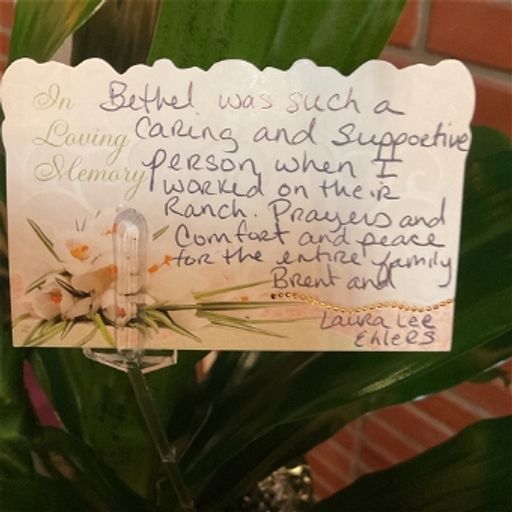 In Loving Memory
Bethel was such a
caring and supportive
person when I
worked on their
Ranch. Prayers and
Comfort and peace
for the entire family
Brent and
Laura Lee
Ehlers